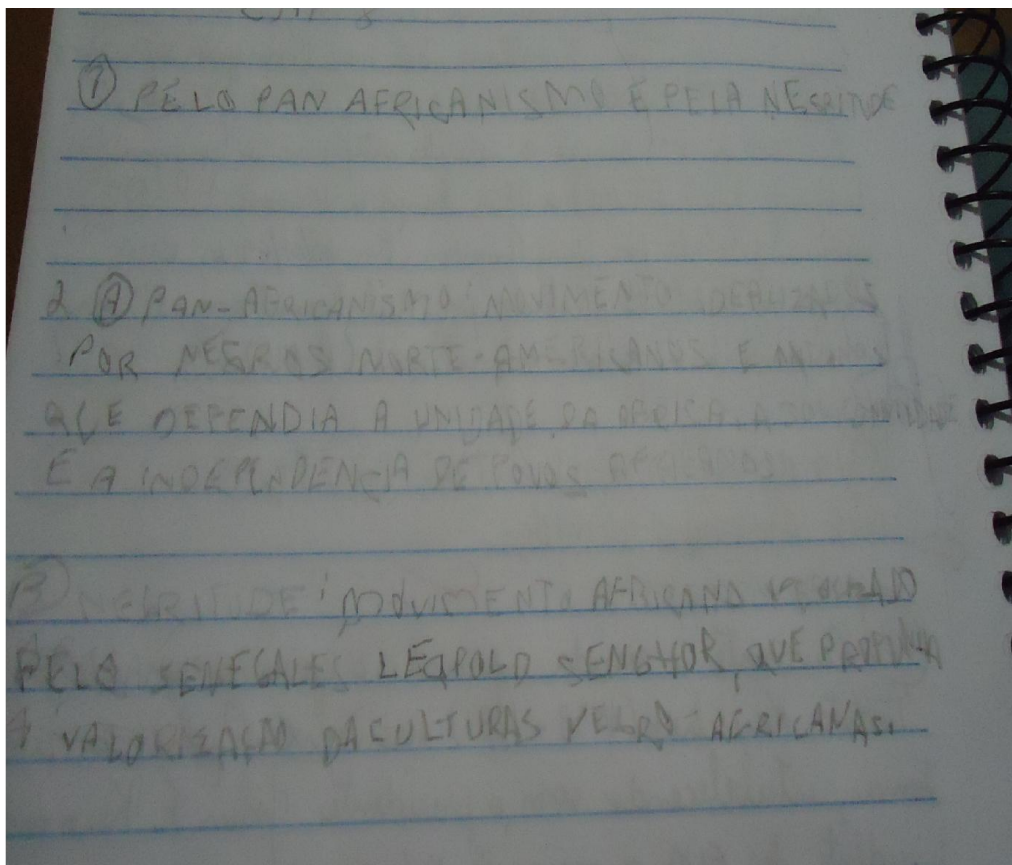 CAP 8
① PELO PAN AFRICANISMO E PELA NEGRITUDE
2 Ⓐ PAN-AFRICANISMO: MOVIMENTO IDEALIZADO
POR NEGROS NORTE-AMERICANOS E
QUE DEFENDIA A UNIDADE DA AFRICA
E A INDEPENDENCIA DE POVOS AFRICANOS
Ⓑ NEGRITUDE: MOVIMENTO AFRICANO
PELO SENEGALES LEOPOLD SENGHOR, QUE
A VALORIZAÇÃO DA CULTURAS NEGRO AFRICANAS.